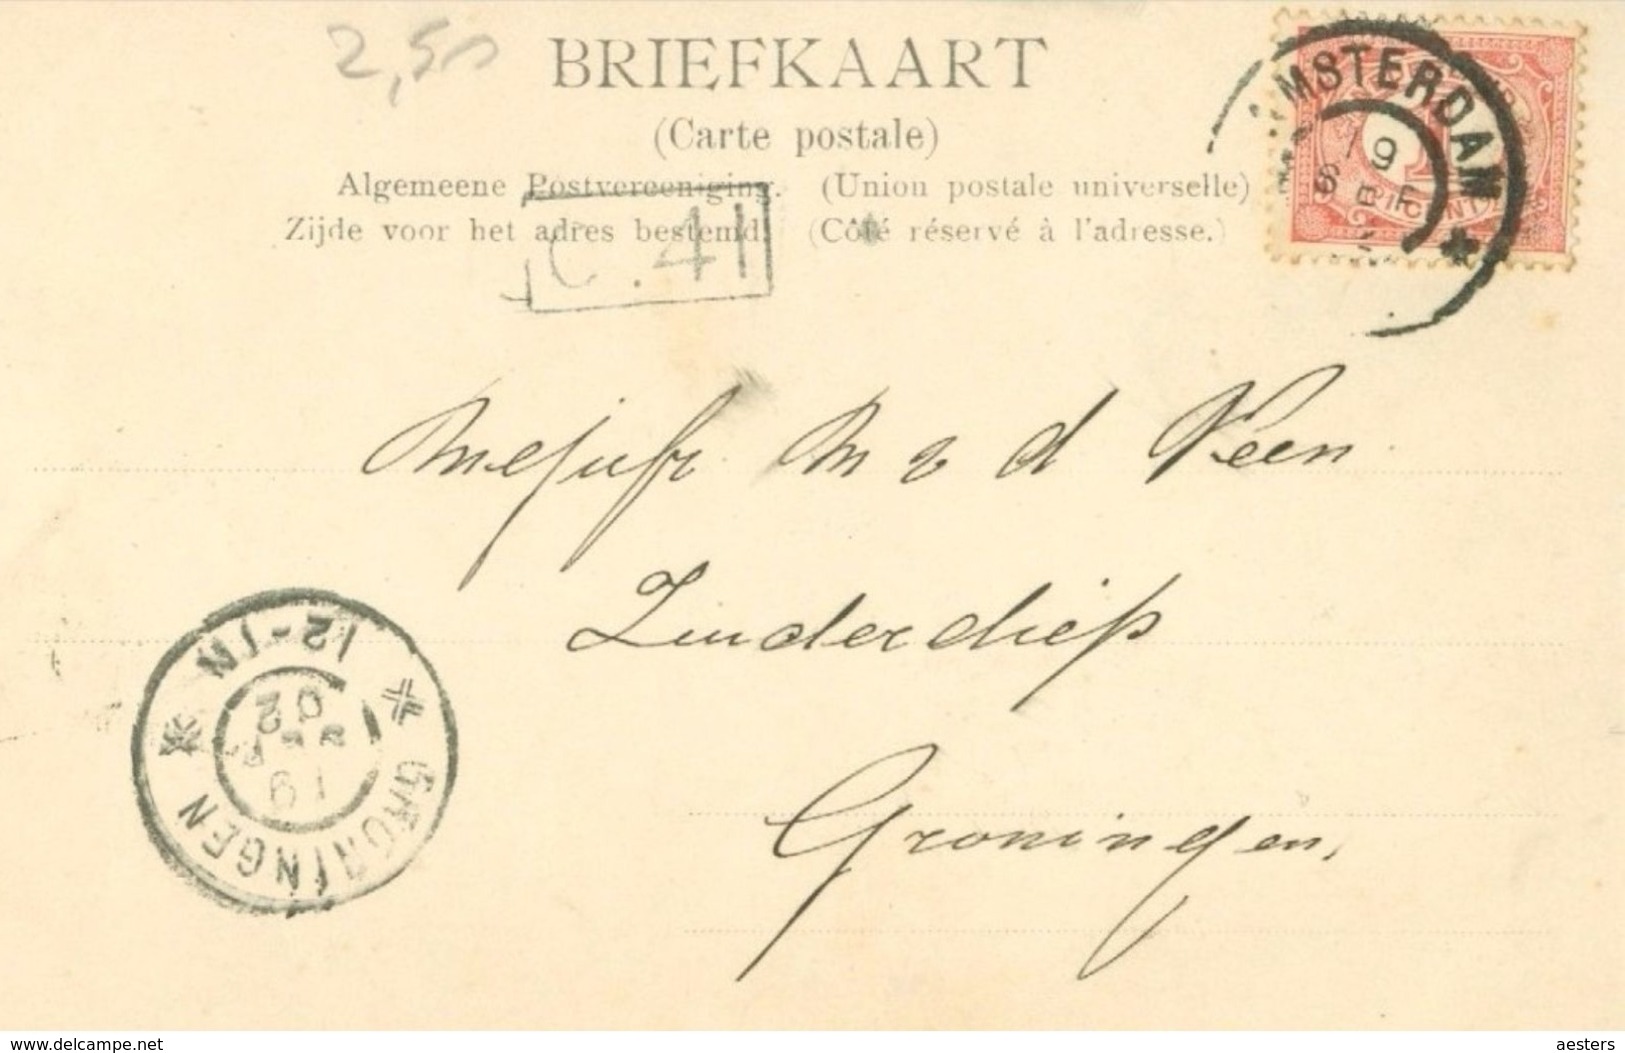 2,50
BRIEFKAART
(Carte postale)
Algemeene Postvereeniging. (Union postale universelle)
Zijde voor het adres bestemd. (Côté réservé à l'adresse.)
C. 41
AMSTERDAM
Mejufr M v d Veen
Zuiderdiep
Groningen.
GRONINGEN
12-1N
19
02
delcampe.net
aesters